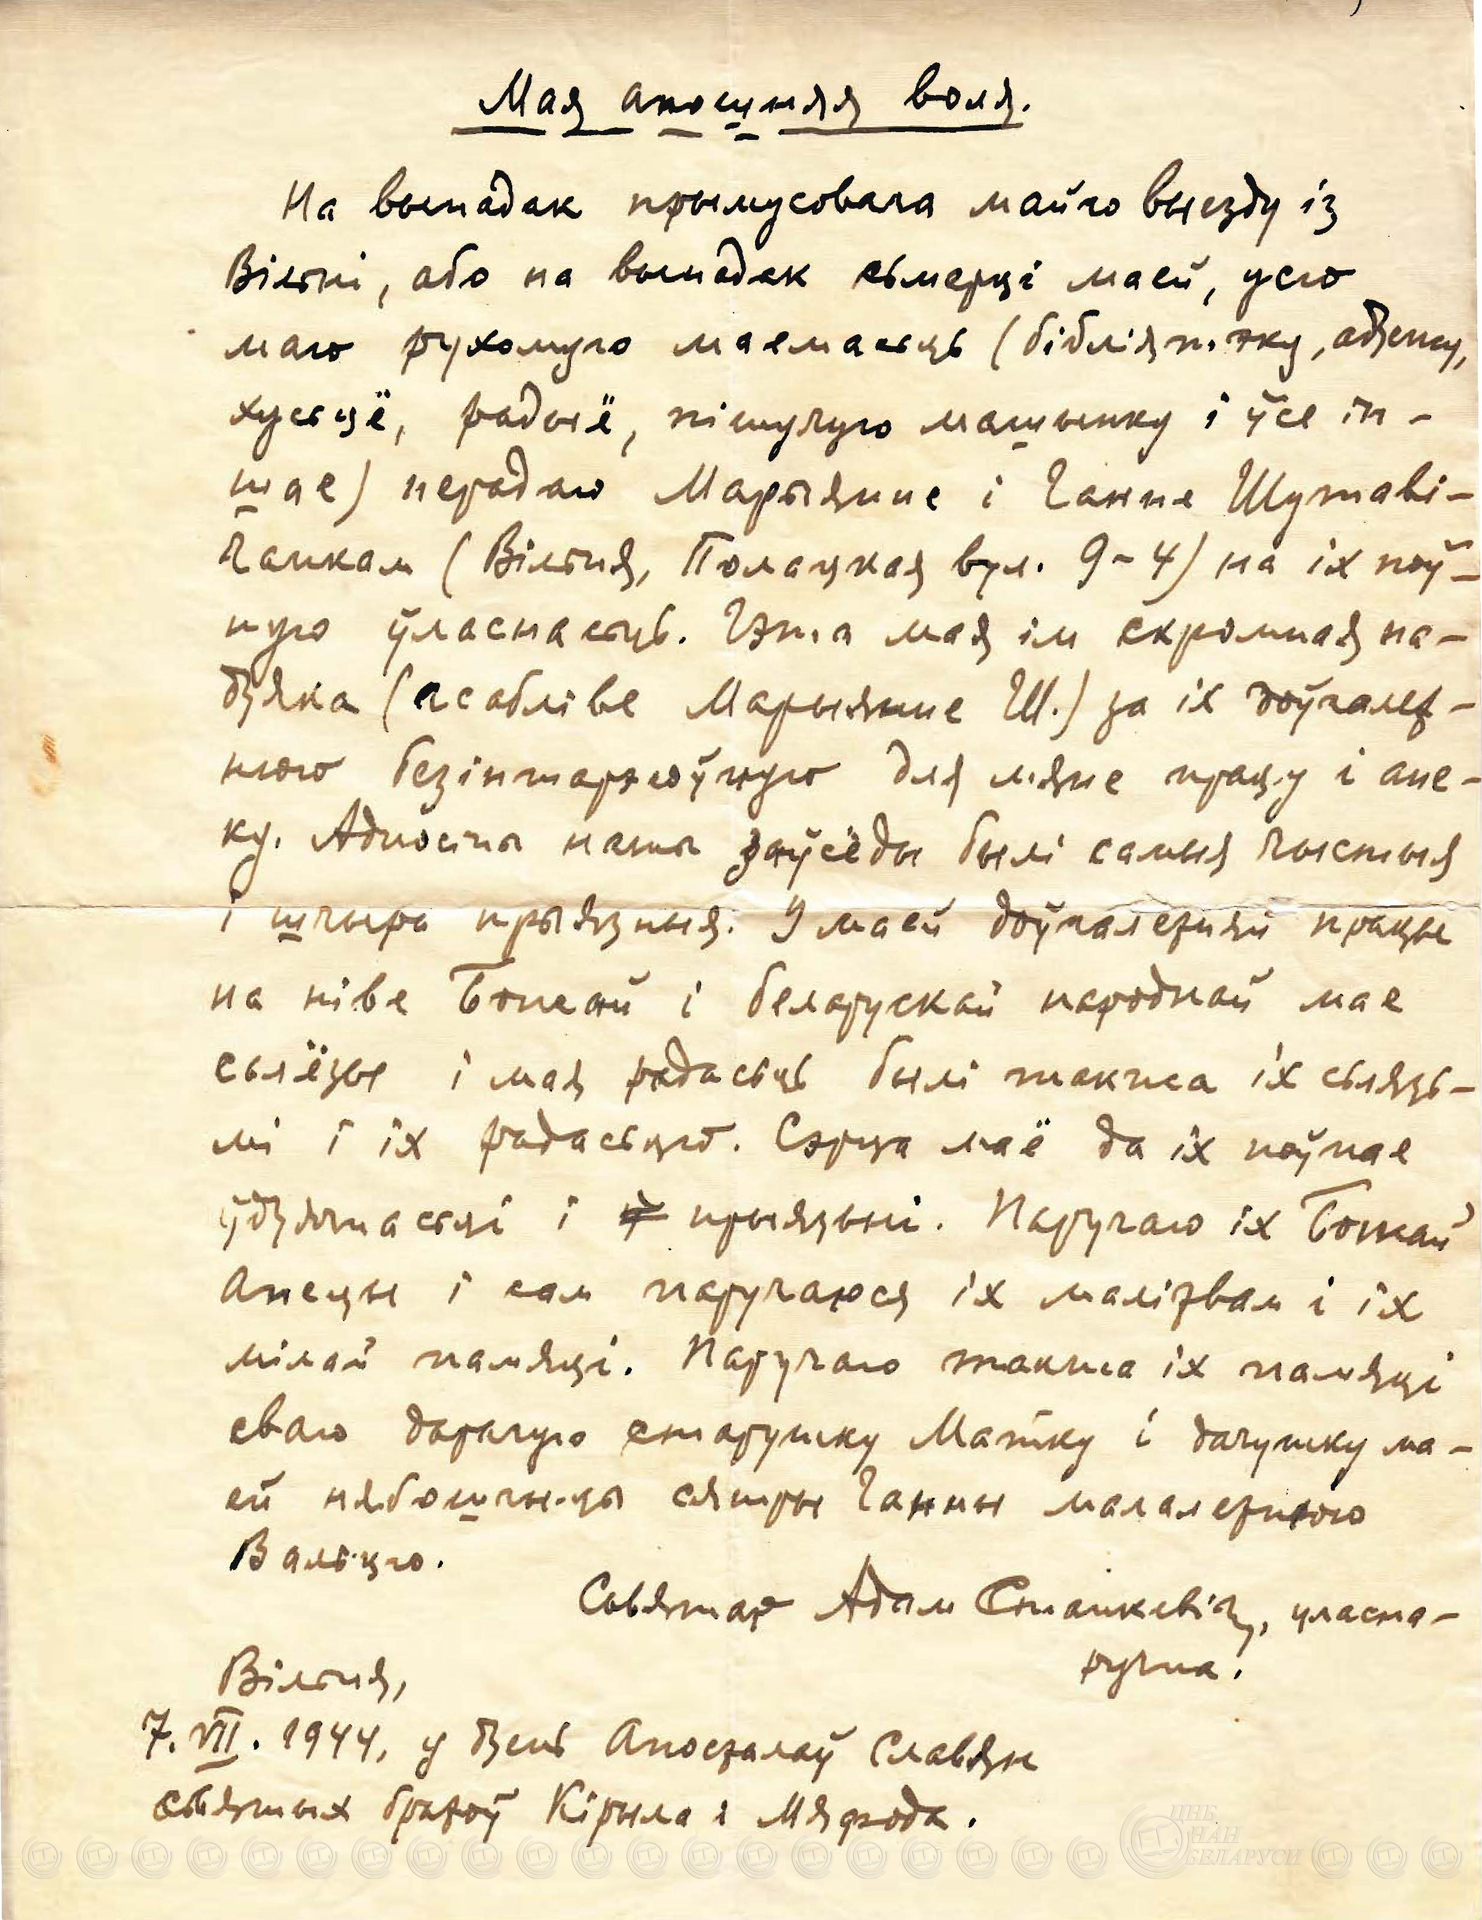 Мая апошняя воля.
На выпадак прымусовага майго выезду із
Вільні, або на выпадак сьмерці маей, усю
маю рухомую маемасьць (бібліятэку, адзежу,
хусьцё, радыё, пішучую машынку і ўсе ін-
шае) перадаю Марыянне і Ганне Шутаві-
чанкам (Вільня, Полацкая вул. 9-4) на іх поў-
ную ўласнасьць. Гэта мая ім скромная па-
дзяка (асабліве Марыянне Ш.) за іх доўгалет-
нюю безінтарэсоўную для мяне працу і апе-
ку. Адносіны нашы заўсёды былі самыя чыстыя
і шчыра прыязныя. У маей доўгалетняй працы
на ніве Божай і беларускай народнай мае
сьлёзы і мая радасьць былі такжа іх сьлязь-
мі і іх радасьцю. Сэрца маё да іх поўнае
ўдзячнасьці і прыязьні. Паручаю іх Божай
Апецы і сам паручаюся іх малітвам і іх
мілай памяці. Паручаю такжа іх памяці
сваю дарагую старушку Матку і дачушку ма-
ей нябошчыцы сястры Ганны малалетнюю
Вальцю.
Сьвятар Адам Станкевіч, уласна-
ручна.
Вільня,
7. VII. 1944, у дзень Апосталаў Славян
сьвятых братоў Кірыла і Мятода.
ЦНБ
НАН
БЕЛАРУСИ